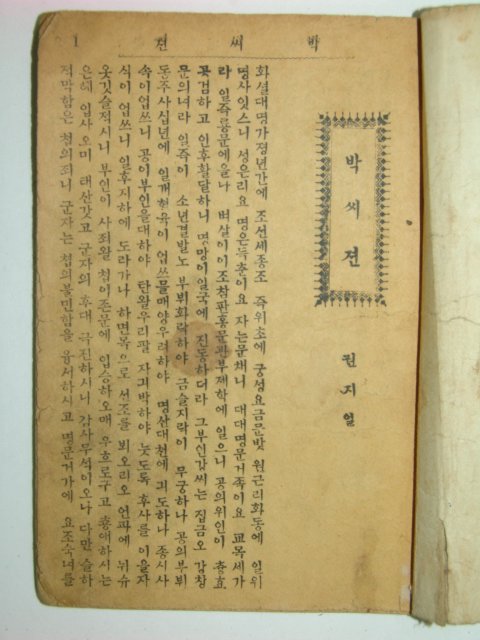 박씨젼
1
박씨젼
권지일
화셜대명가졍년간에 조선세종조 즉위초에 궁셩요금문밧 원근리화동에 일위
명사잇스니 셩은리요 명은득춘이요 자는문채니 대대명문거족이요 교목셰가
라 일즉룡문에올나 벼살이이조참판홍문관부제학에 일으니 공의위인이 츙효
곳겸하고 인후찰달하니 명망이일국에 진동하더라 그부인강씨는 집금오 강창
문의녀라 일즉이 소년결발노 부뷔화락하야 금슬지락이 무궁하나 공의부뷔
돈주사십년에 일개혈육이 업쓰믈매양우려하야 명산대천에 긔도하나 종시사
속이업쓰니 공이부인을대하야 탄왈우리팔자긔박하야 늣도록 후사를 이을자
식이 업쓰니 일후지하에 도라가나 하면목으로 선조를 뵈오리오 언파에 뉘슈
옷깃슬젹시니 부인이 사죄왈 첩이존문에 입승하오매 우흐로구고 춍애하시는
은혜 입사오미 태산갓고 군자의 후대 극진하시니 감사무석이오나 다만 슬하
젹막함은 첩의죄니 군자는 첩의불민함을 용서하시고 명문거가에 요조숙녀를